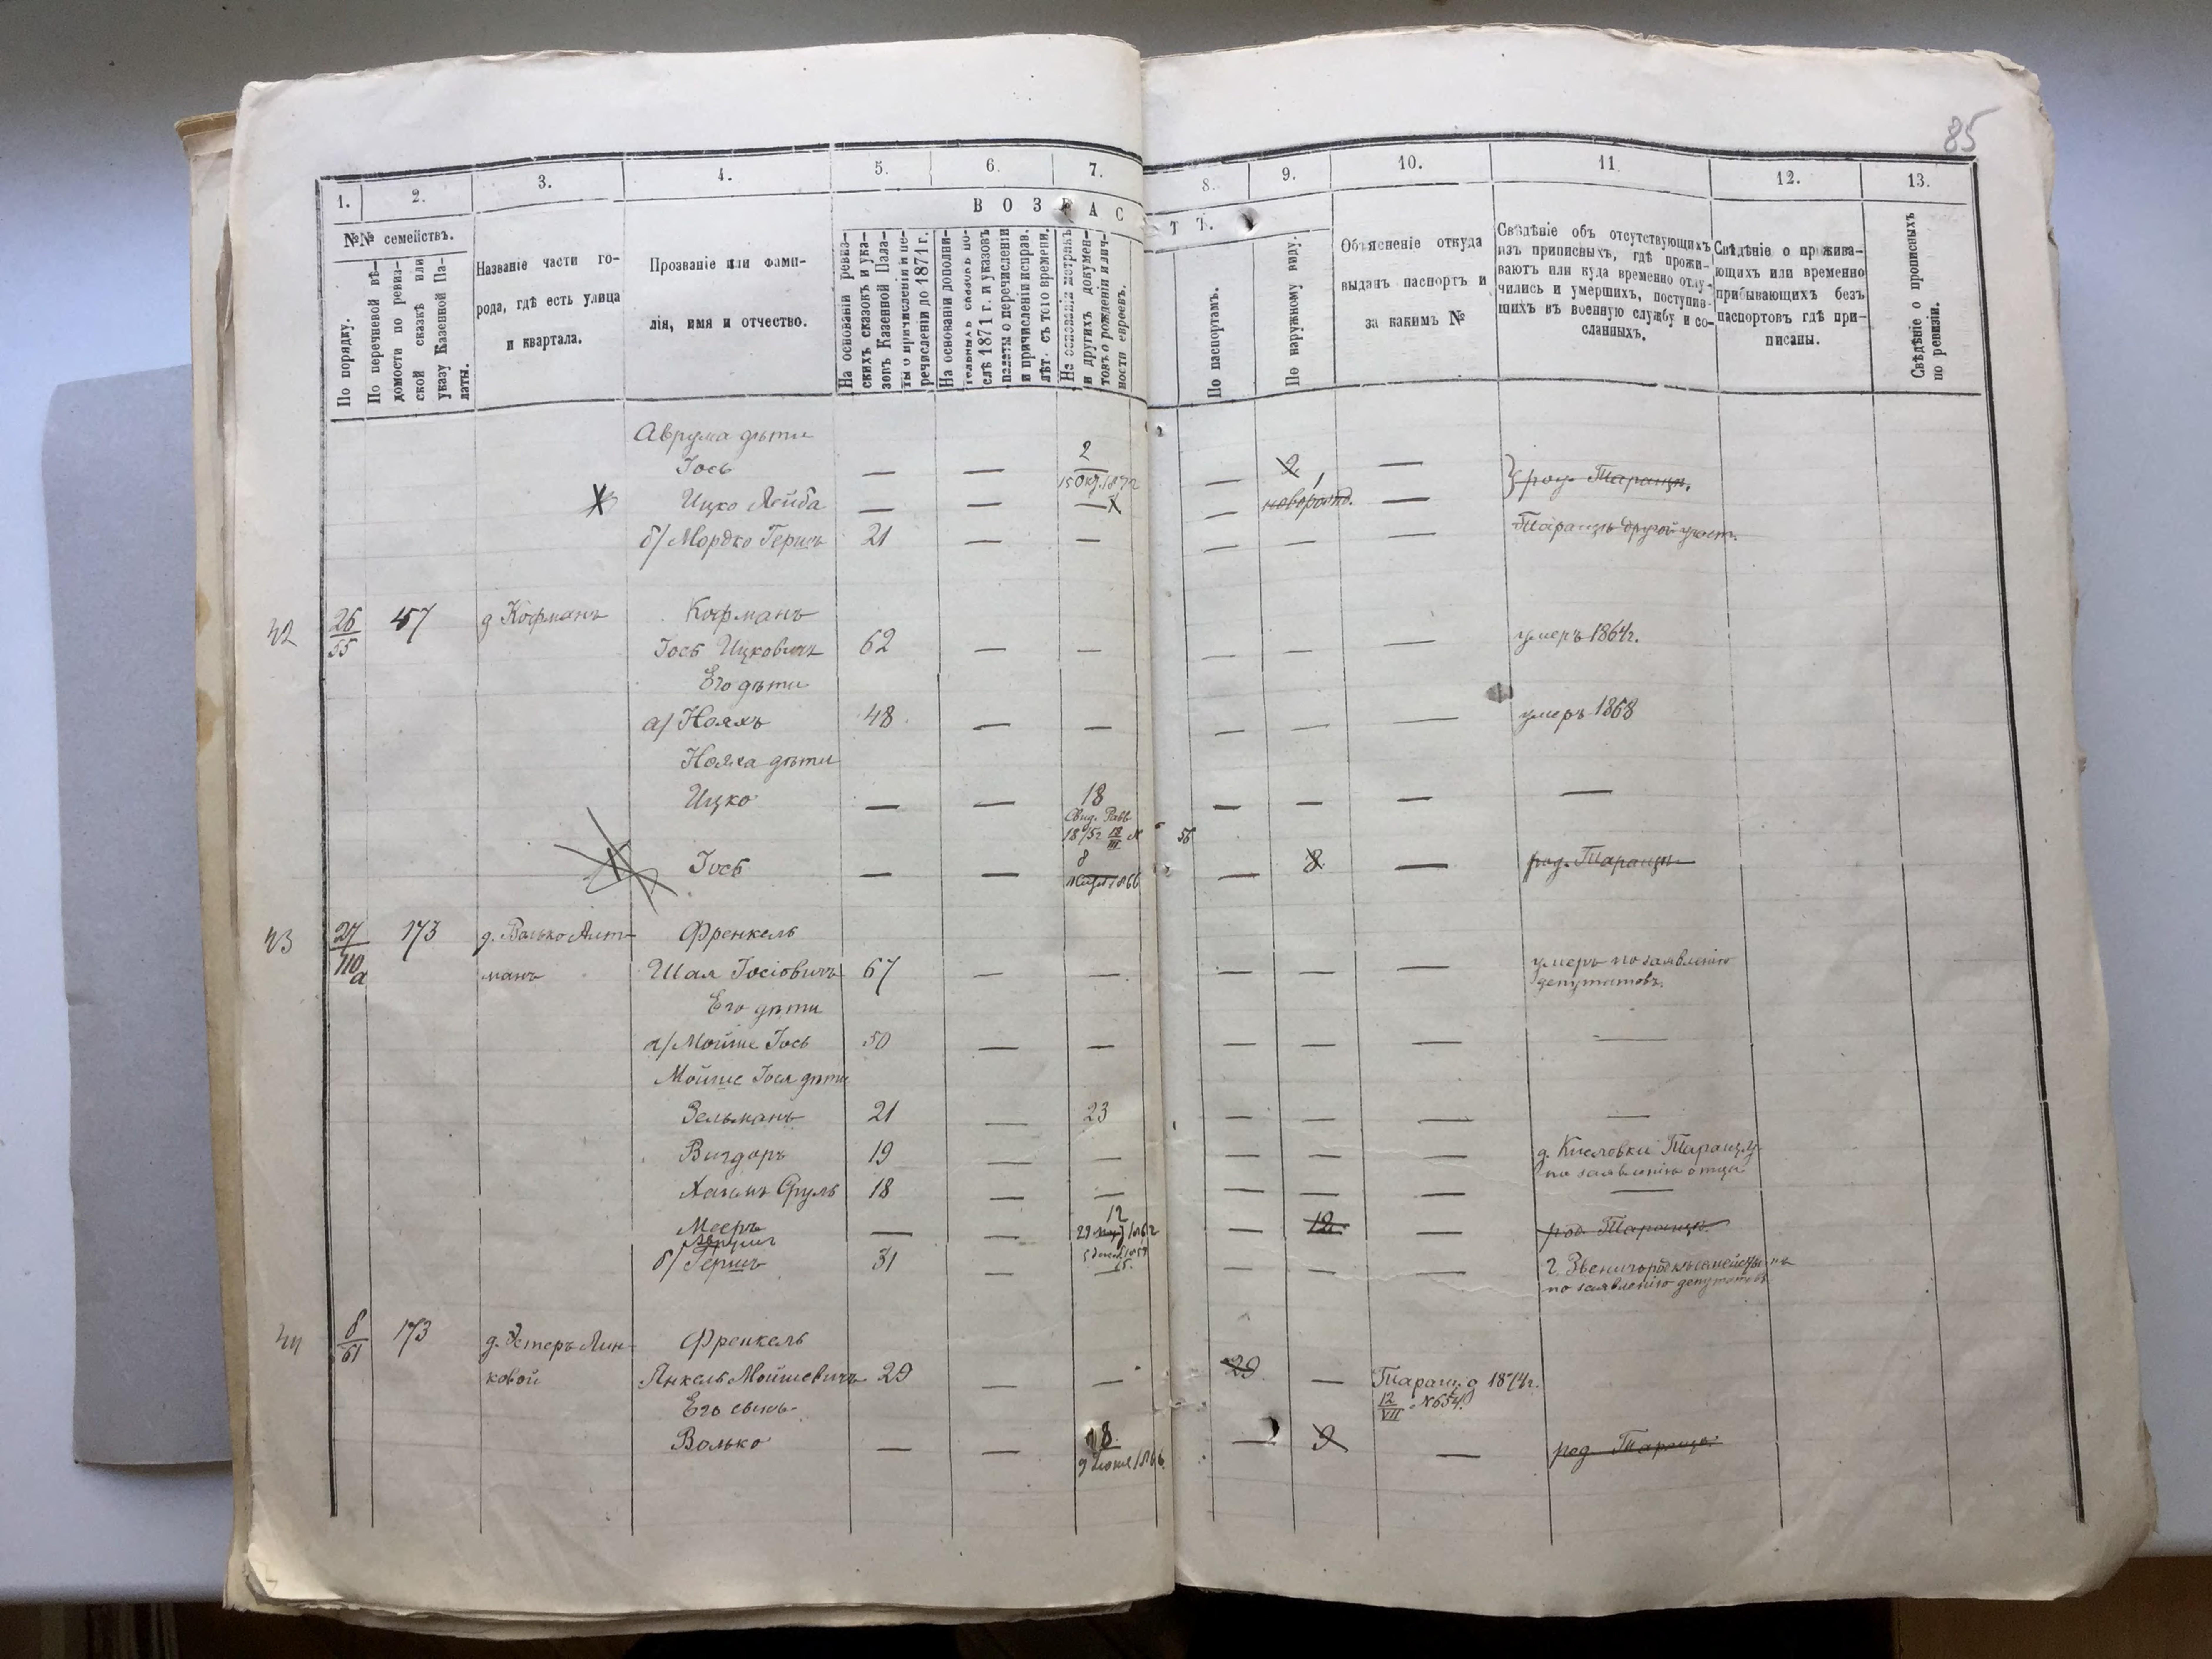 85
1. 2. 3. 4. 5. 6. 7. 8. 9. 10. 11 12. 13.
№№ семействъ.
По порядку.
По перечневой вѣ-
домости по ревиз-
ской сказкѣ или
указу Казенной Па-
латы.
Названіе части го-
рода, гдѣ есть улица
и квартала.
Прозваніе или фами-
лія, имя и отчество.
ВОЗРАСТТ.
На основаніи ревиз-
скихъ сказокъ и ука-
зовъ Казенной Пала-
ты о причисленіи и пе-
речисленіи до 1871 г.
На основаніи дополни-
тельныхъ сказокъ по-
слѣ 1871 г. и указовъ
палаты о перечисленіи
и причисленіи исправ.
лѣт. съ того времени.
На основаніи метрикъ
и других документ-
товъ о рожденіи илич-
ности евреевъ.
По паспортамъ.
По наружному виду.
Объясненіе откуда
выданъ паспортъ и
за какимъ №
Свѣдѣніе объ отсутствующихъ
изъ приписныхъ, гдѣ прожи-
ваютъ или куда временно отлу-
чились и умершихъ, поступив-
шихъ въ военную службу и со-
сланныхъ.
Свѣдѣніе о прожива-
ющихъ или временно
прибывающихъ безъ
паспортовъ гдѣ при-
писаны.
Свѣдѣніе о прописныхъ
по ревизіи.
Аврума дѣти
Іось — — 2 — 2 —
15 Окт. 1872
род. Таращи.
Ицко Лейба — — — — новорожд. —
б/ Мордко Гершъ 21 — — — — — Таращъ другой участ.
42 26/55 157 д Кофманъ Кофманъ
Іось Ицковичъ 62 — — — — — умеръ 1864 г.
Его дѣти
а/ Нояхъ 48 — — — — — умеръ 1868
Нояха дѣти
Ицко — — 18 — — — —
Свид. Равв
56
Іось — — 8 — 8 — род. Таращи
1866
43 27/110а 173 д. Валько Альт- Френкель
манъ Шая Іосіовичъ 67 — — — — — умеръ по заявленію
депутатовъ.
Его дѣти
а/ Мойше Іось 50 — — — — — —
Мойше Іося дѣти
Зельманъ 21 — 23 — — — —
Вигдоръ 19 — — — — — д. Кисловки Таращ. у.
по заявленію отца
Хаимъ Сруль 18 — — — — — —
Мееръ — — 12 — 12 — род Таращи.
б/ Гершъ 31 — — — — —
по заявленію депутатовъ
44 8/61 173 д. Эстеръ Лин- Френкель
ковой Янкель Мойшевичъ 29 — — 29 — Таращ. д 1874 г.
12/VII №654
Его сынъ
Валько — — 8 — 9 — род Таращ.
9 Іюня 1866